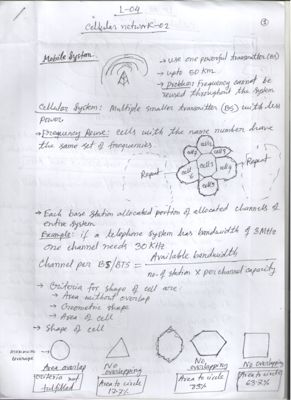 L-04
Cellular network-02
Mobile System
→ use one powerful transmitter (BS)
→ upto 50 km.
→ Problem: Frequency cannot be
reused throughout the system
Cellular System: Multiple smaller transmitter (BS) with less
power
→ Frequency Reuse: cells with the same number have
the same set of frequencies.
Repeat
Repeat
→ Each base station allocated portion of allocated channels of
entire system
Example: if a telephone system has bandwidth of 3 MHz
one channel needs 30 KHz
Channel per BS/BTS = Available bandwidth
no. of station X per channel capacity
→ Criteria for shape of cell are:
→ Area without overlap
→ Geometric shape
→ Area of cell
→ Shape of cell
Area overlap
criteria not
fulfilled
No
overlapping
Area to circle
No
overlapping
Area to circle
No overlapping
Area to circle
63.7%